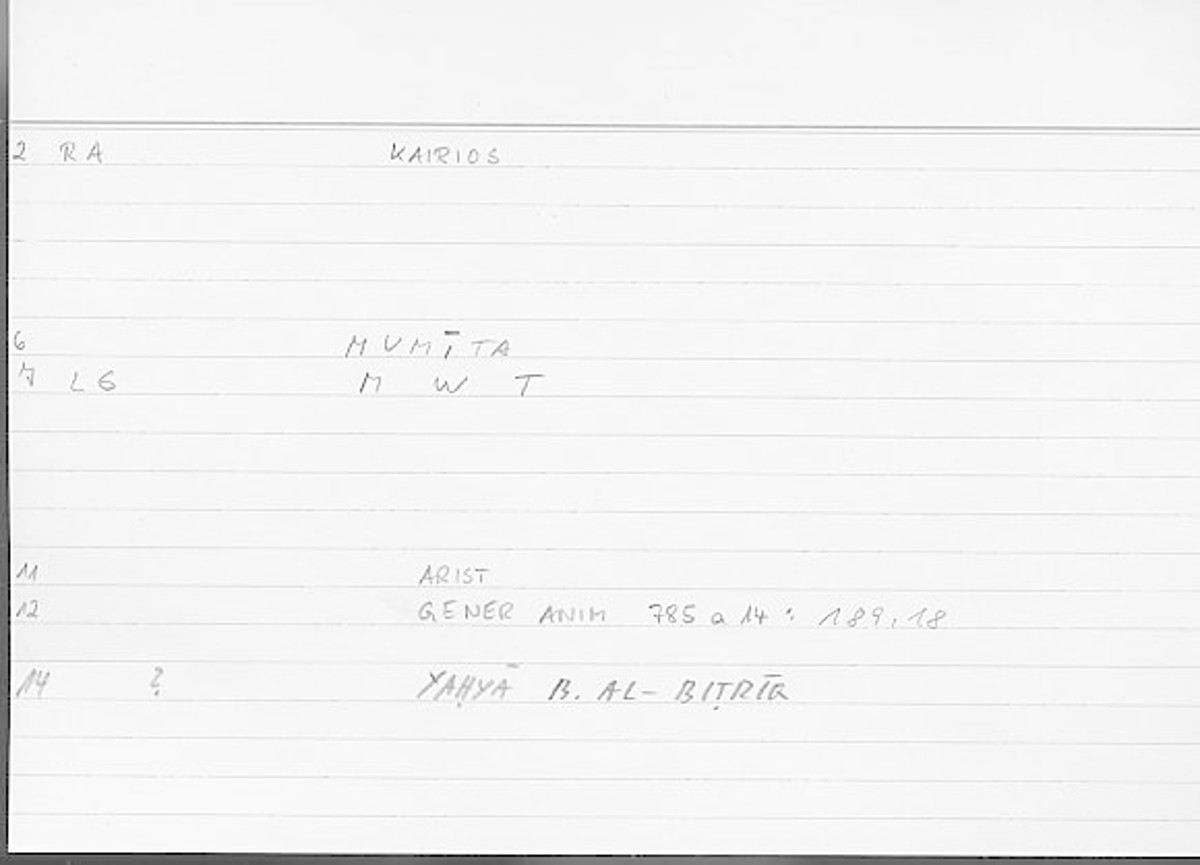 2 RA KAIRIOS
6 MUMĪTA
7 LG M W T
11 ARIST
12 GENER ANIM 785 a 14 : 189,18
14 ? YAḤYĀ B. AL-BIṬRĪQ